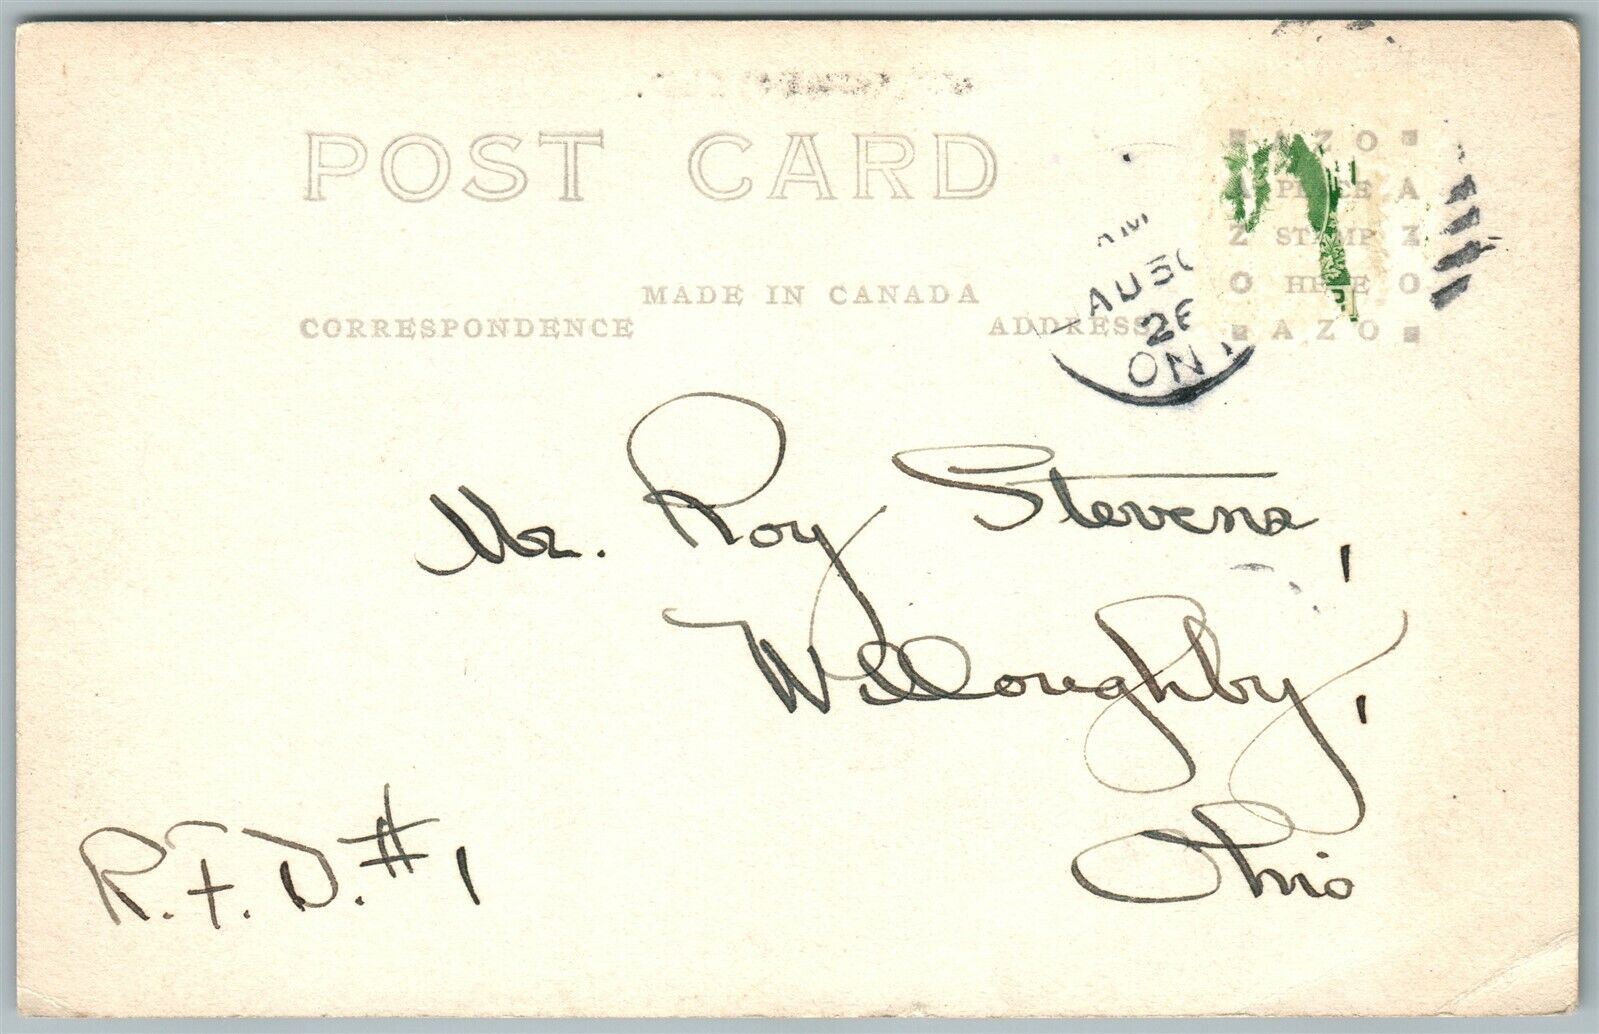 POST CARD
MADE IN CANADA
CORRESPONDENCE
ADDRESS
AZO
PLACE
STAMP
HERE
AZO
A Z O
A Z O
AM
AU 30
26
ONT
Mr. Roy Stevens,
Willoughby,
Ohio
R.F.D.#1